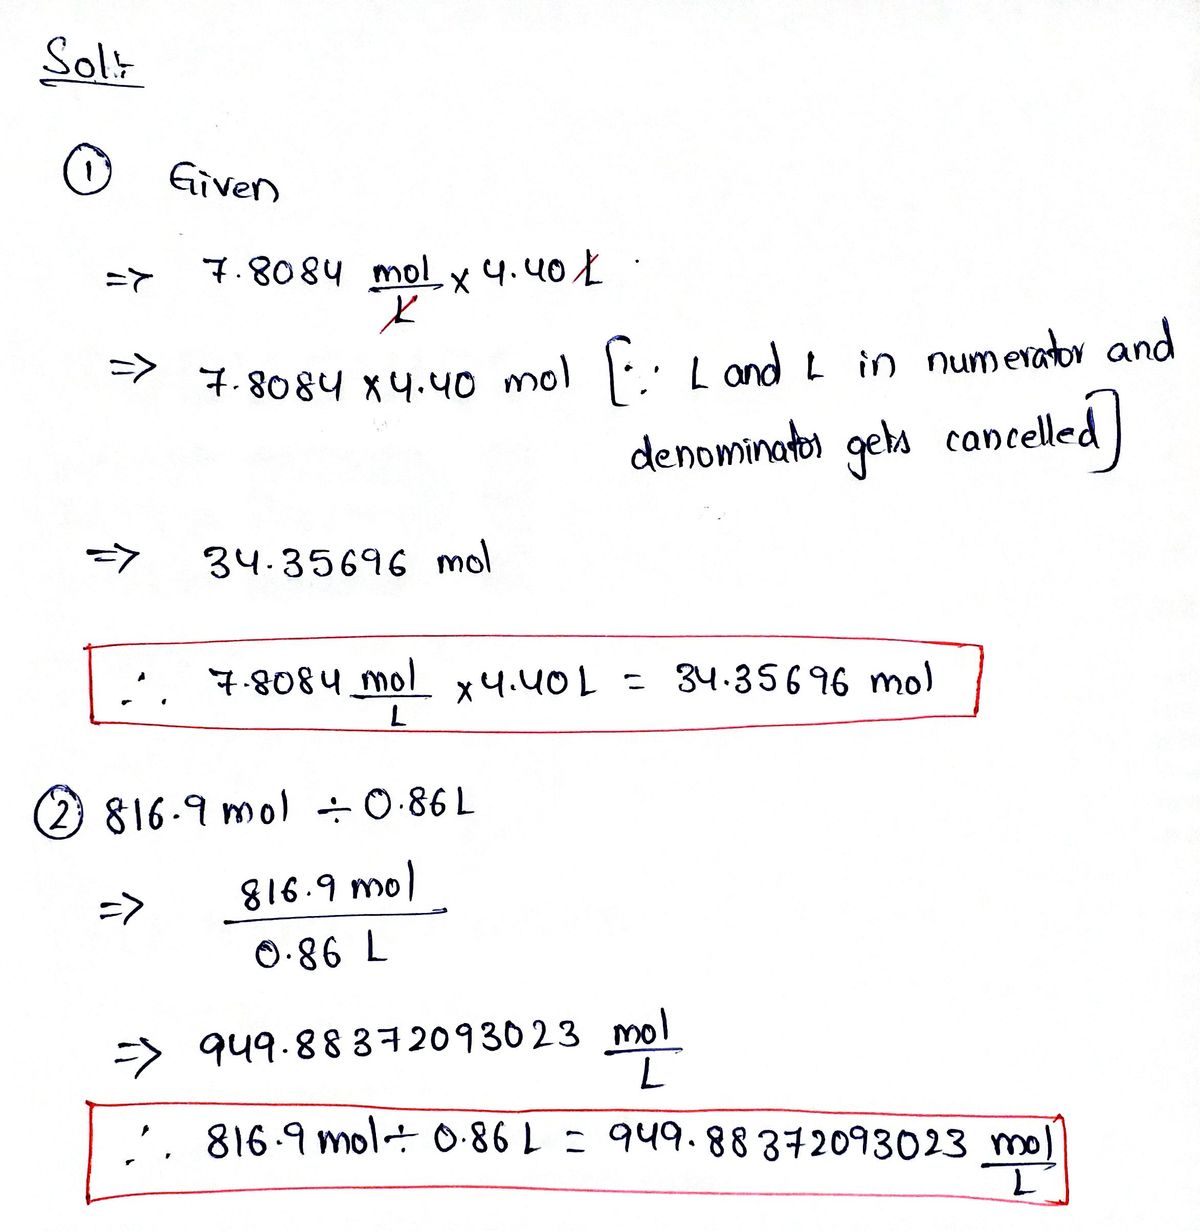 Sol:-
① Given
=> 7.8084 mol/L × 4.40 L
=> 7.8084 × 4.40 mol [∵ L and L in numerator and
denominator gets cancelled]
=> 34.35696 mol
∴ 7.8084 mol/L × 4.40 L = 34.35696 mol
② 816.9 mol ÷ 0.86 L
=> 816.9 mol
0.86 L
=> 949.88372093023 mol/L
∴ 816.9 mol ÷ 0.86 L = 949.88372093023 mol/L